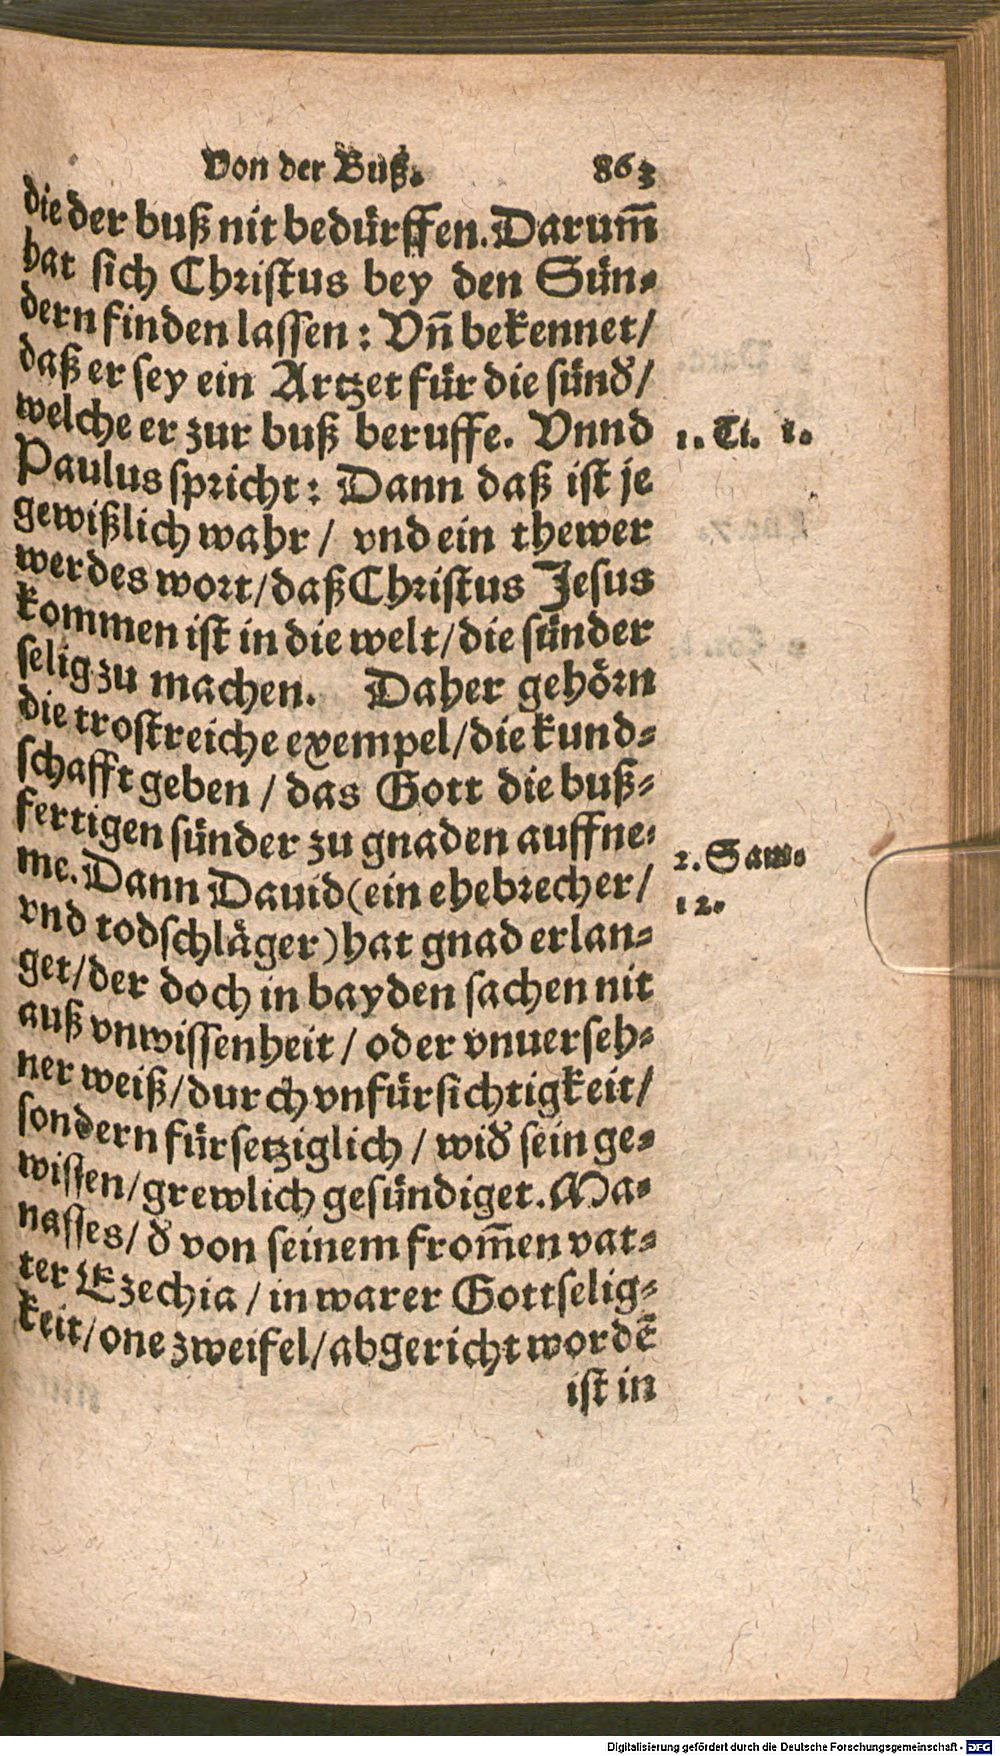 Von der Buß. 863
die der buß nit bedürffen. Darum̃
hat sich Christus bey den Sün-
dern finden lassen: Vñ bekennet/
daß er sey ein Artzet für die sünd̕/
welche er zur buß beruffe. Vnnd
1. Ti. 1.
Paulus spricht: Dann daß ist je
gewißlich wahr / vnd ein thewer
werdes wort/daß Christus Jesus
kommen ist in die welt/die sünder
selig zu machen. Daher gehörn
die trostreiche exempel/die kund-
schafft geben / das Gott die buß-
fertigen sünder zu gnaden auffne-
me. Dann Dauid (ein ehebrecher/
2. Sam.
12.
vnd todschläger) hat gnad erlan-
get/der doch in bayden sachen nit
auß vnwissenheit / oder vnuerseh-
ner weiß/durch vnfürsichtigkeit/
sondern fürsetziglich / wid̕ sein ge-
wissen/grewlich gesündiget. Ma-
nasses/ d̕ von seinem from̃en vat-
ter Ezechia / in warer Gottselig-
keit/one zweifel/abgericht wordẽ
ist in
Digitalisierung gefördert durch die Deutsche Forschungsgemeinschaft - DFG